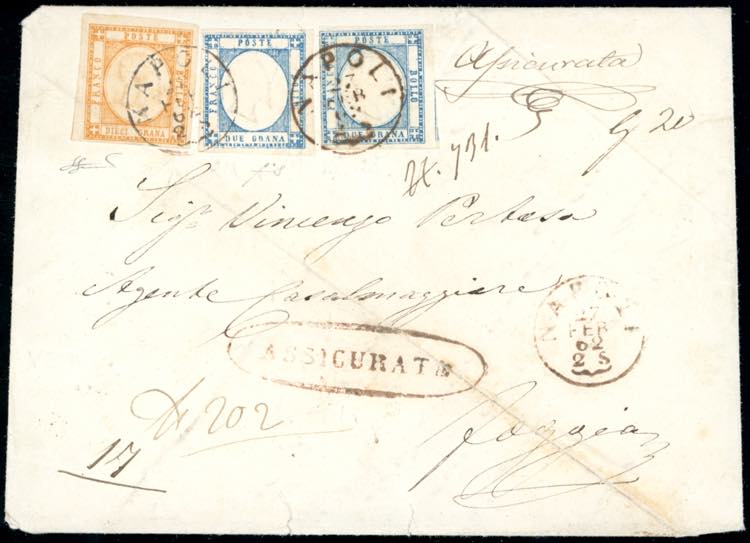 POSTE
FRANCO
DIECI GRANA
POSTE
FRANCO
DUE GRANA
POSTE
BOLLO
DUE GRANA
NAPOLI
NAPOLI
Assicurata
G 20
N. 731.
Sigr Vincenzo
Agente Casalmaggiore
NAPOLI
17
FEB
62
2 S
ASSICURATE
N 202
Foggia
17